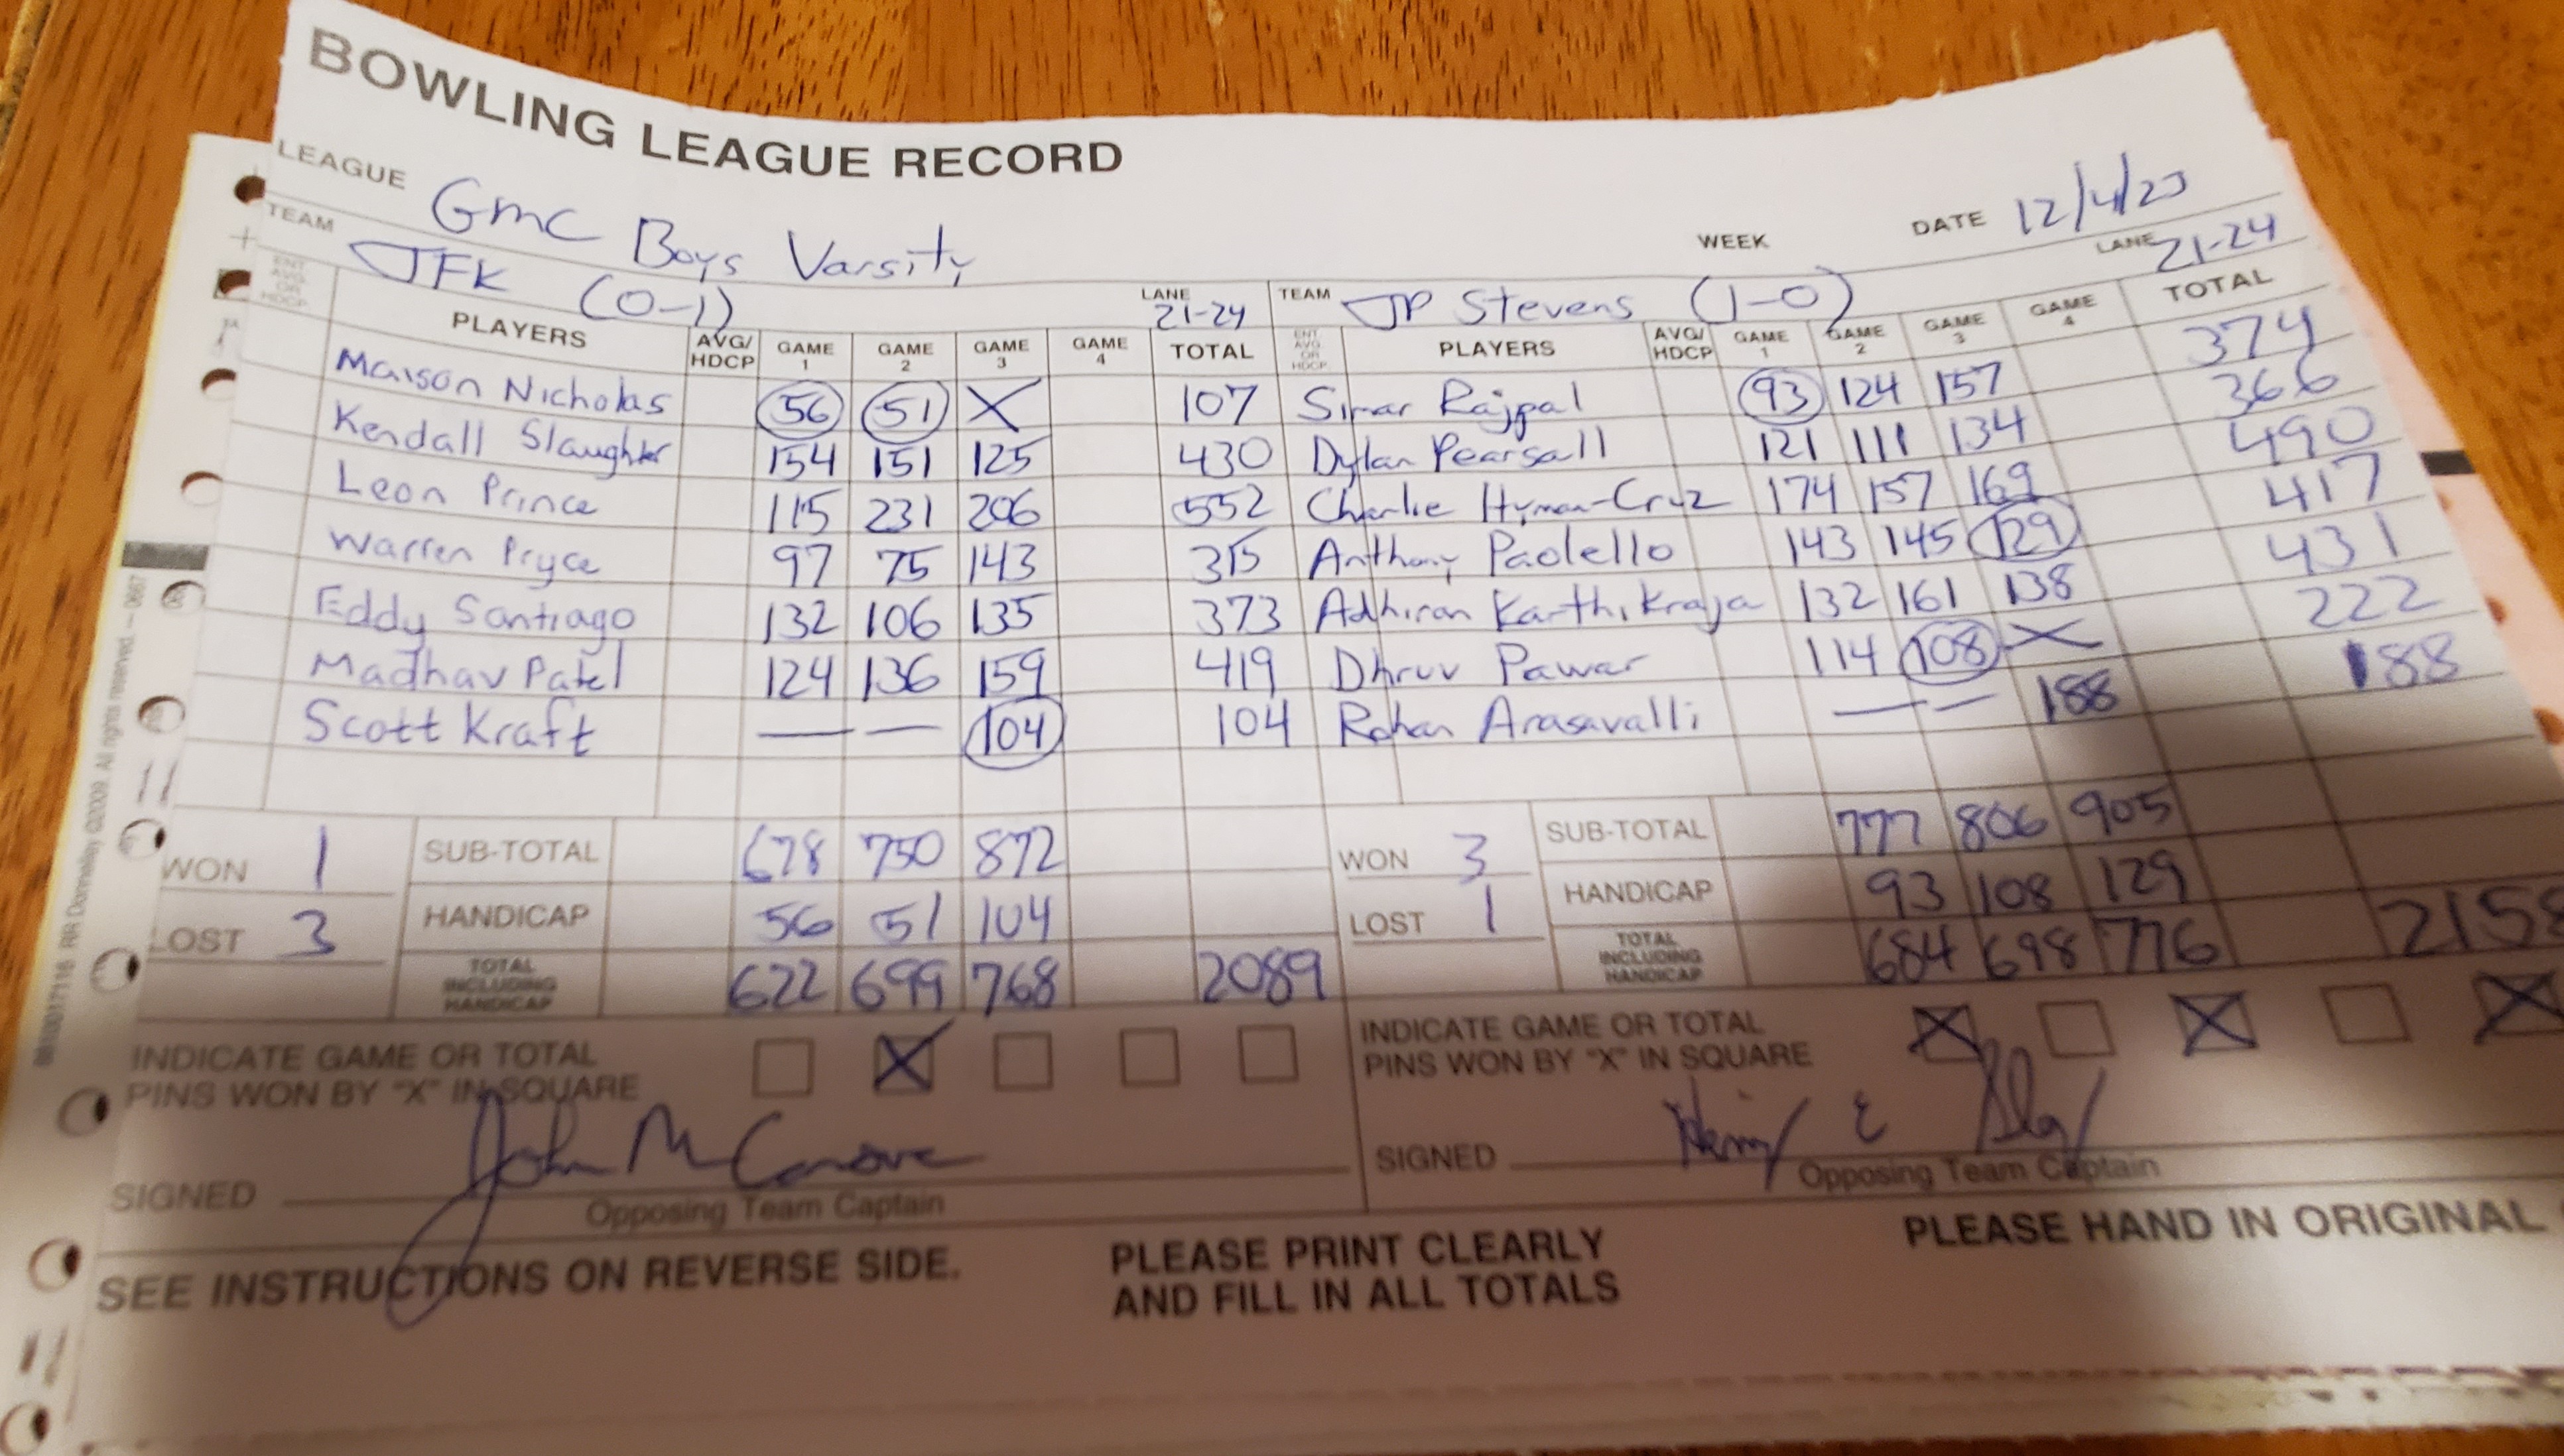 BOWLING LEAGUE RECORD
LEAGUE GMC Boys Varsity WEEK DATE 12/4/23
TEAM JFK (0-1) LANE 21-24 TEAM JP Stevens (1-0) LANE 21-24
ENT. AVG. OR HDCP. PLAYERS AVG/HDCP GAME 1 GAME 2 GAME 3 GAME 4 TOTAL ENT. AVG. OR HDCP. PLAYERS AVG/HDCP GAME 1 GAME 2 GAME 3 GAME 4 TOTAL
Maison Nicholas 56 51 X 107 Simar Rajpal 93 124 157 374
Kendall Slaughter 154 151 125 430 Dylan Pearsall 121 111 134 366
Leon Prince 115 231 206 552 Charlie Hyman-Cruz 174 157 169 490
Warren Pryce 97 75 143 315 Anthony Paolello 143 145 129 417
Eddy Santiago 132 106 135 373 Adhiran Karthikraja 132 161 138 431
Madhav Patel 124 136 159 419 Dhruv Pawar 114 108 X 222
Scott Kraft — — 104 104 Rohan Arasavalli — — 188 188
WON 1 SUB-TOTAL 678 750 872 WON 3 SUB-TOTAL 777 806 905
LOST 3 HANDICAP 56 51 104 LOST 1 HANDICAP 93 108 129
TOTAL INCLUDING HANDICAP 622 699 768 2089 TOTAL INCLUDING HANDICAP 684 698 776 2158
INDICATE GAME OR TOTAL X INDICATE GAME OR TOTAL X X X
PINS WON BY "X" IN SQUARE PINS WON BY "X" IN SQUARE
SIGNED John M SIGNED
Opposing Team Captain Opposing Team Captain
SEE INSTRUCTIONS ON REVERSE SIDE. PLEASE PRINT CLEARLY PLEASE HAND IN ORIGINAL
AND FILL IN ALL TOTALS
RR Donnelley ©2009. All rights reserved. - 0667